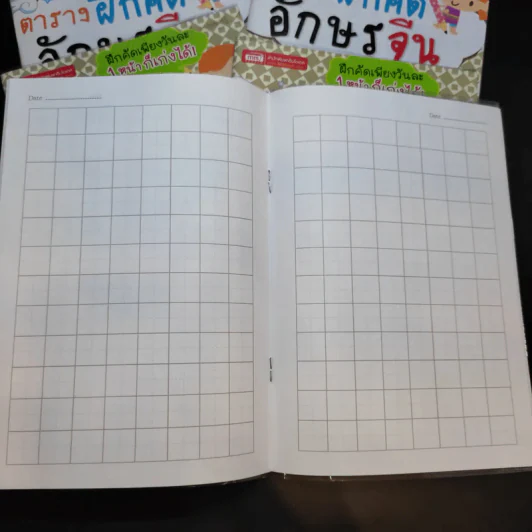 ตารางฝึกคัด
อักษรจีน
ฝึกคัดเพียงวันละ
1 หน้า ก็เก่งได้!
ฝึกคัด
อักษรจีน
ฝึกคัดเพียงวันละ
1 หน้า ก็เก่งได้!
Date
Date